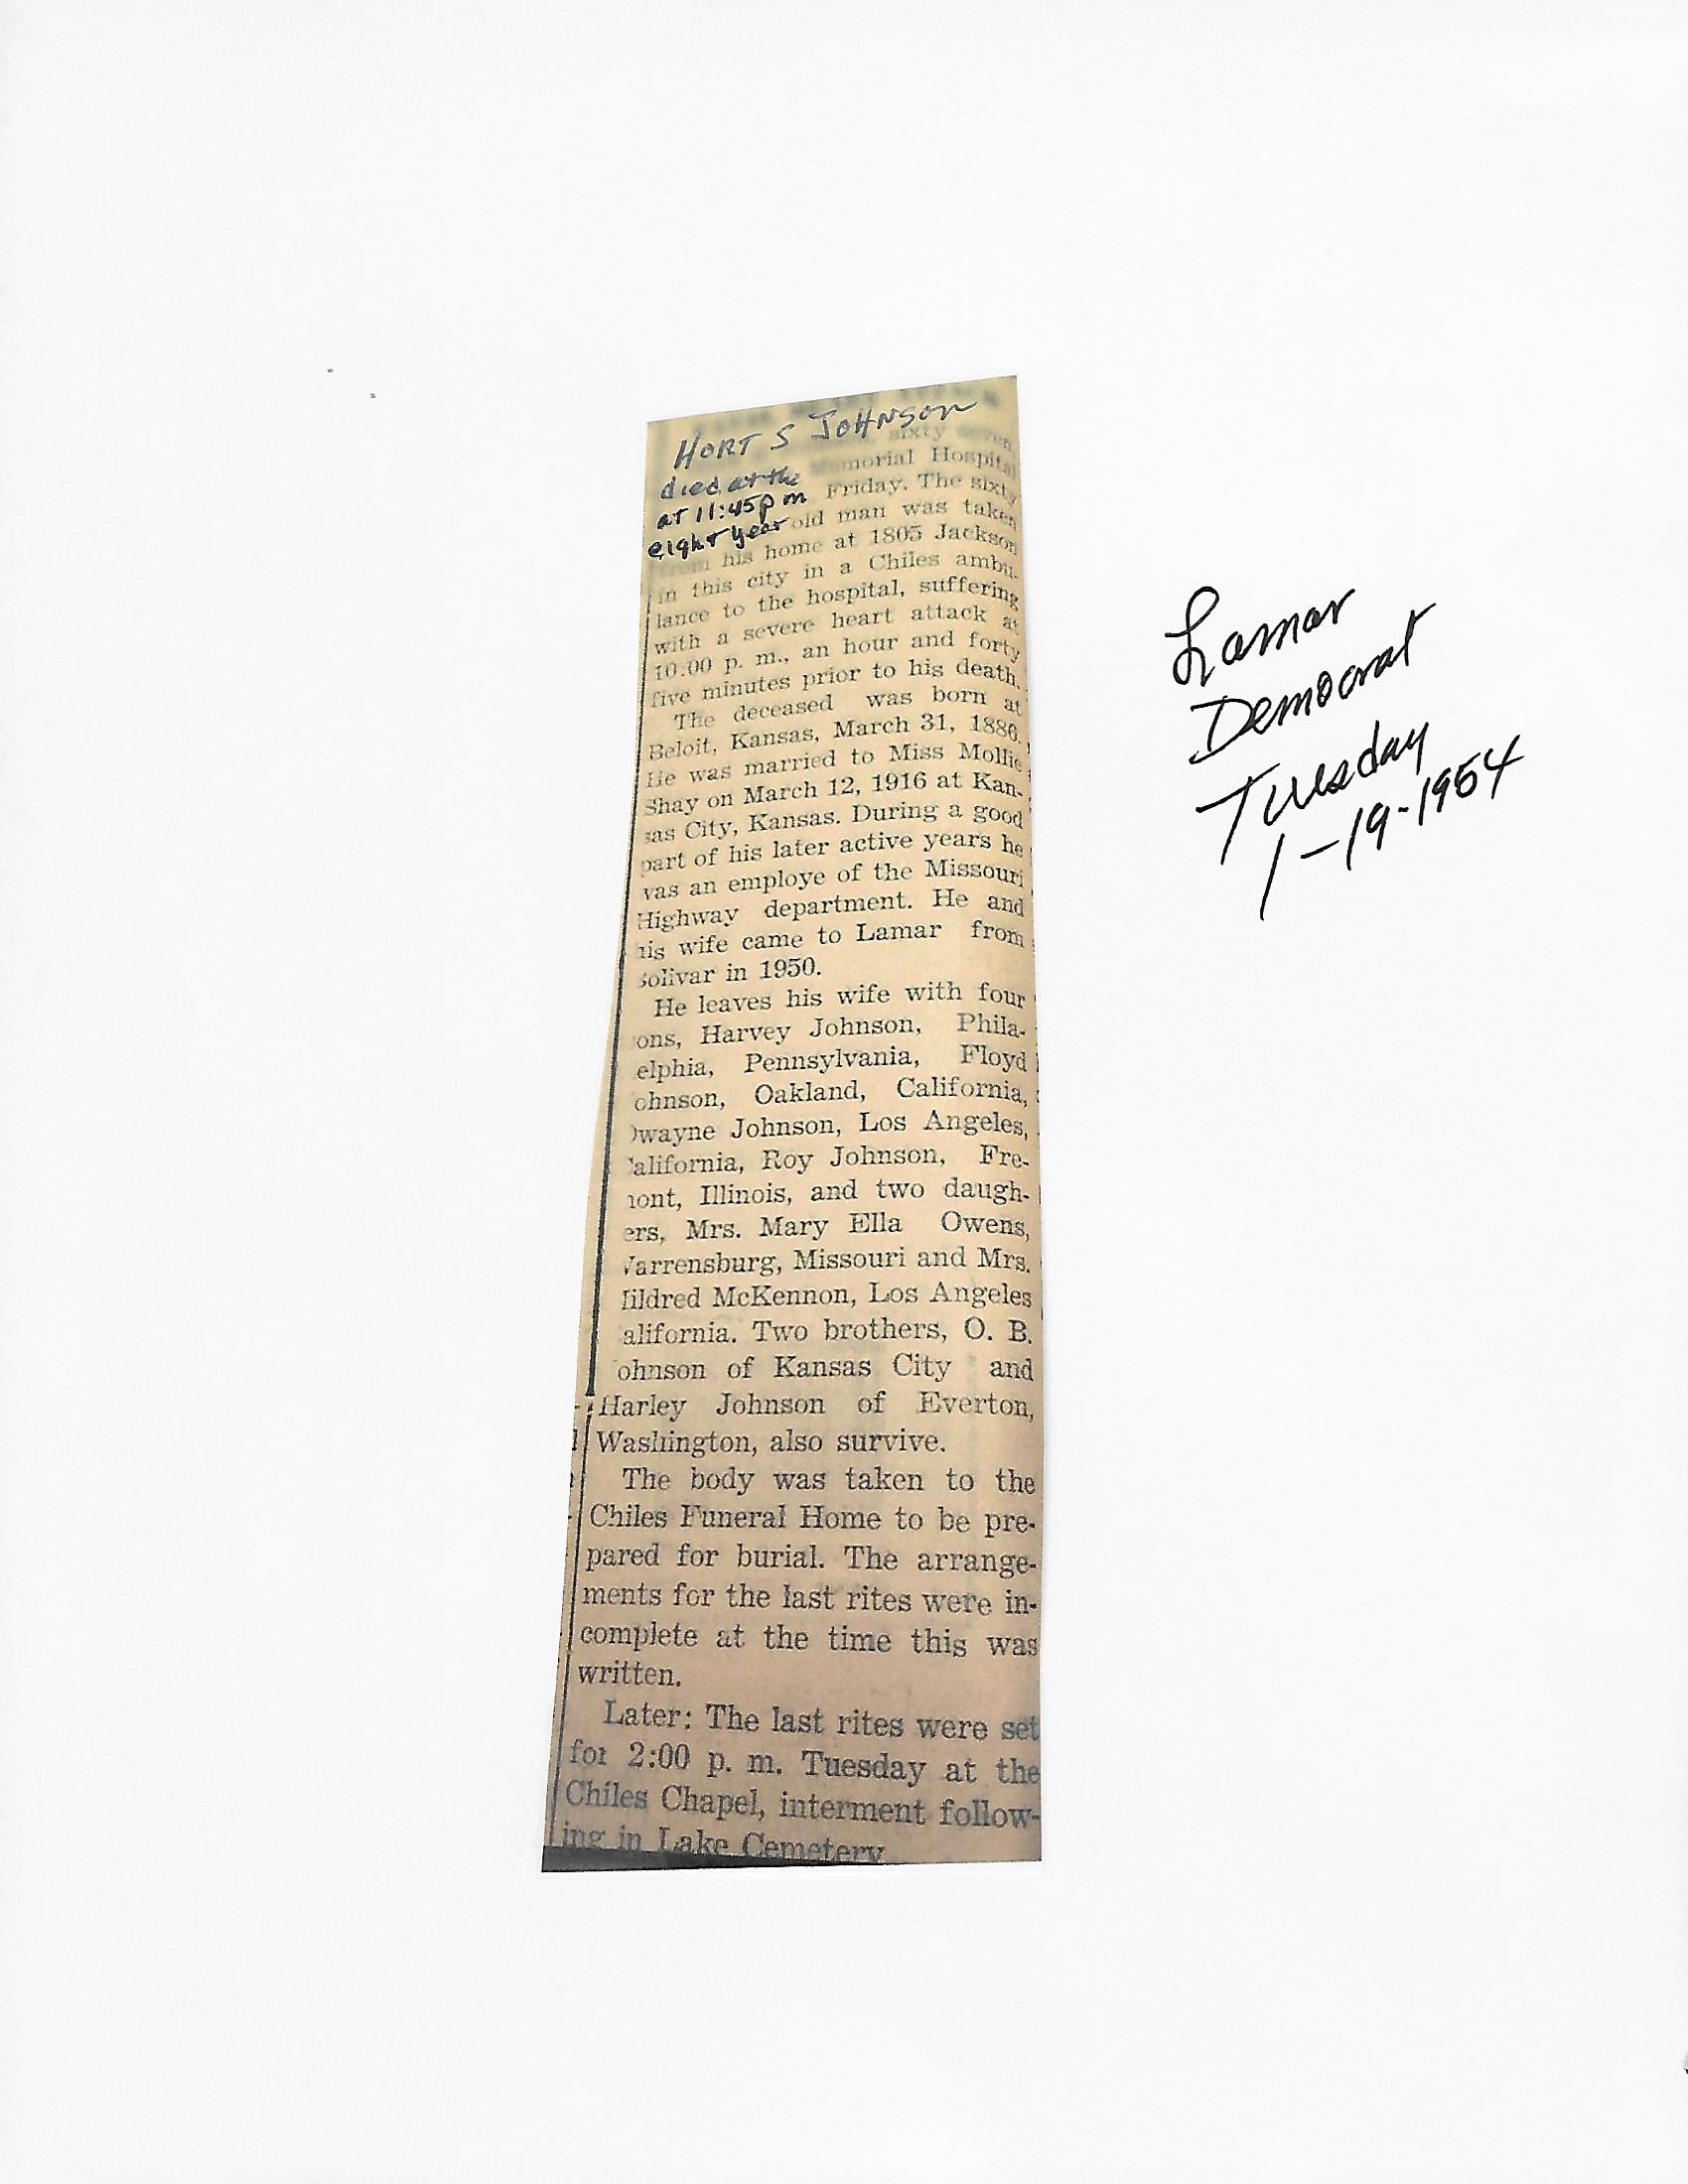 HORT S JOHNSON
sixty seven
died at the Memorial Hospital
at 11:45pm Friday. The sixty
eight year old man was taken
from his home at 1805 Jackson
in this city in a Chiles ambu-
lance to the hospital, suffering
with a severe heart attack at
10:00 p. m., an hour and forty
five minutes prior to his death.
The deceased was born at
Beloit, Kansas, March 31, 1886.
He was married to Miss Mollie
Shay on March 12, 1916 at Kan-
sas City, Kansas. During a good
part of his later active years he
vas an employe of the Missouri
Highway department. He and
his wife came to Lamar from
Bolivar in 1950.
He leaves his wife with four
ons, Harvey Johnson, Phila-
elphia, Pennsylvania, Floyd
ohnson, Oakland, California,
Dwayne Johnson, Los Angeles,
California, Roy Johnson, Fre-
mont, Illinois, and two daugh-
ers, Mrs. Mary Ella Owens,
Warrensburg, Missouri and Mrs.
Mildred McKennon, Los Angeles
alifornia. Two brothers, O. B.
ohnson of Kansas City and
Harley Johnson of Everton,
Washington, also survive.
The body was taken to the
Chiles Funeral Home to be pre-
pared for burial. The arrange-
ments for the last rites were in-
complete at the time this was
written.
Later: The last rites were set
for 2:00 p. m. Tuesday at the
Chiles Chapel, interment follow-
ing in Lake Cemetery
Lamar
Democrat
Tuesday
1-19-1954